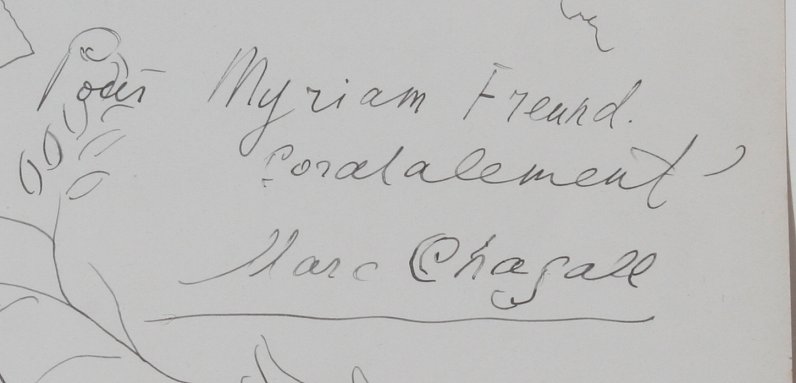 Pour Myriam Freund.
Cordialement
Marc Chagall